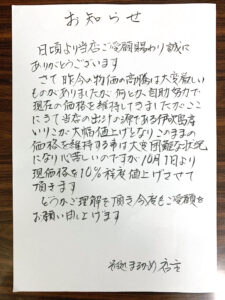 お知らせ
日頃より当店ご愛顧賜わり誠に
ありがとうございます
さて昨今の物価の高騰は大変激しい
ものがありましたが、何とか自助努力で
現在の価格を維持してきましたがここ
にきて当店の出汁の源である伊吹島産
いりこが大幅値上げとなりこのままの
価格を維持する事は大変困難な状況
になり心苦しいのですが10月1日より
現価格を10%程度値上げさせて
頂きます
どうかご理解を頂き今後もご愛顧を
お願い申し上げます
まるかめ 店主